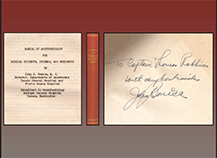 MANUAL OF ANESTHESIOLOGY
FOR
MEDICAL STUDENTS, INTERNS, AND RESIDENTS
by
John J. Bonica, M. D.
Director, Department of Anesthesia
Tacoma General Hospital and
Pierce County Hospital
Consultant in Anesthesiology
Madigan General Hospital
Tacoma, Washington
To Captain Thomas Robbins
with very best wishes
John Bonica